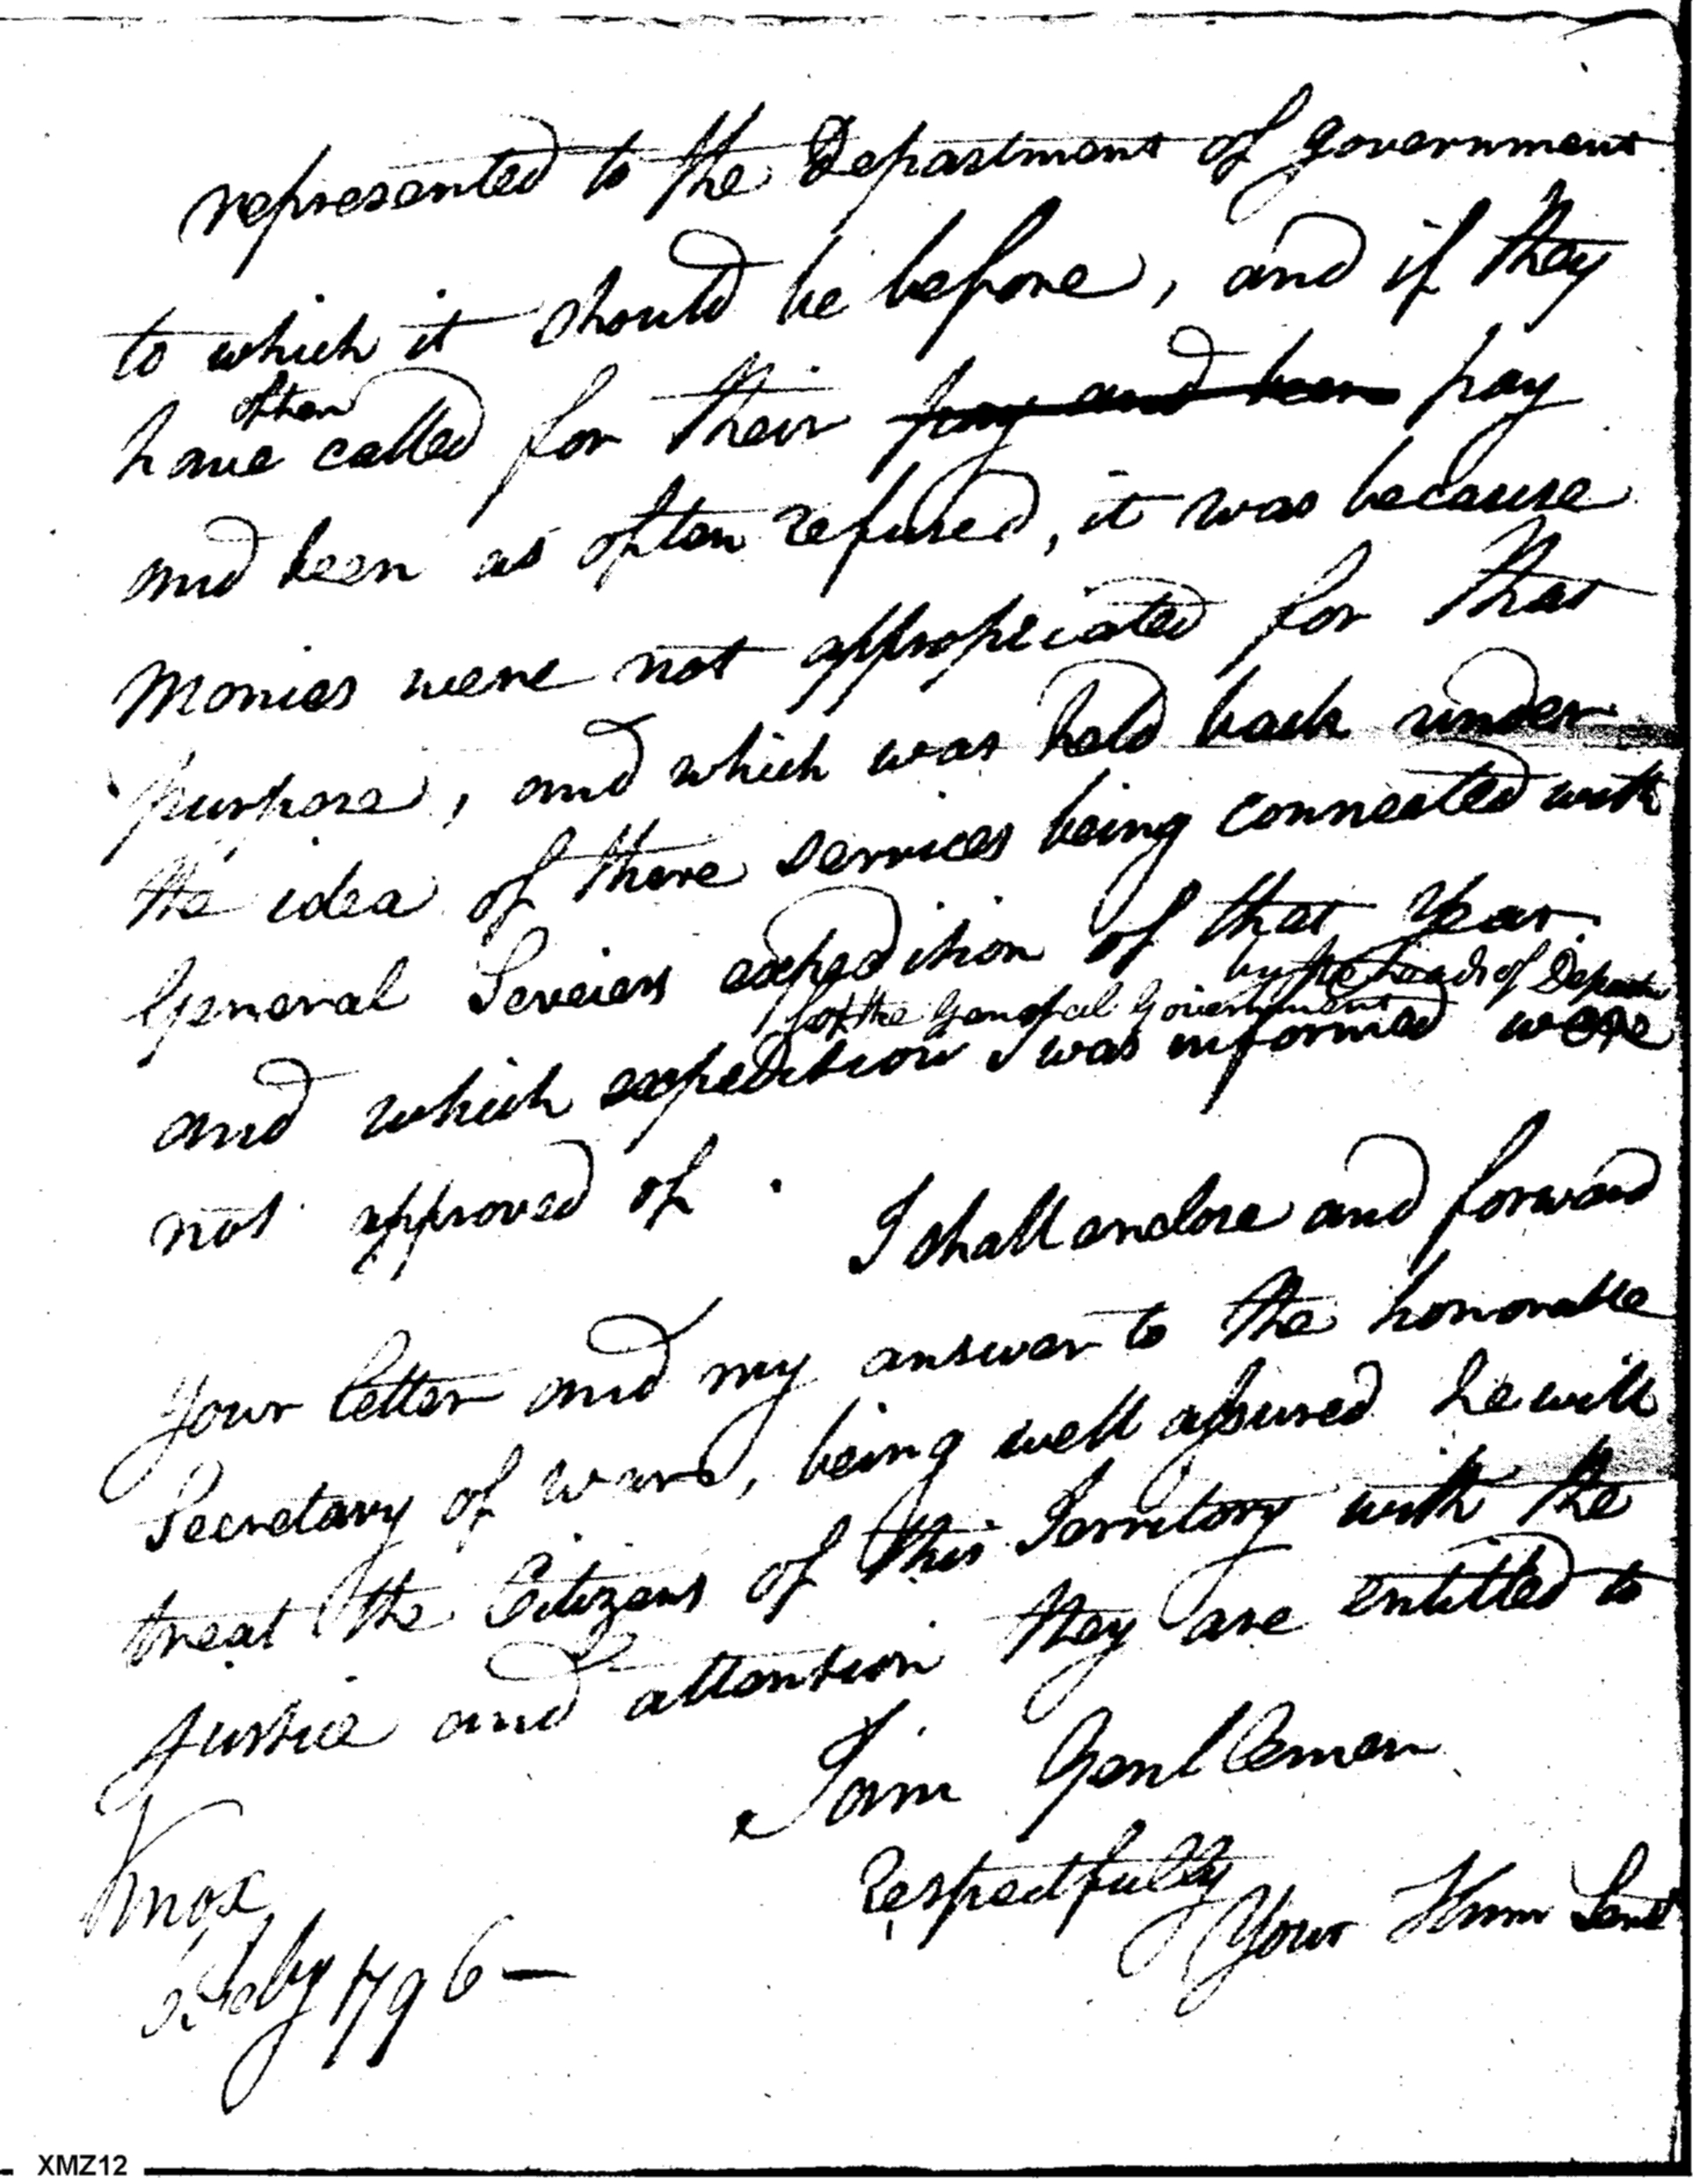 represented to the Department of government
to which it should be before, and if they
often
have called for their pay and been pay
and been as often refused, it was because
monies were not appropriated for that
purpose, and which was held back under
the idea of there services being connected with
General Seveiers expedition of that Year.
by the heads of Departs
of the General Government
and which expedition I was informed were
not approved of. I shall enclose and forward
your letter and my answer to the honorable
Secretary of war, being well assured he will
treat the Citizens of this Territory with the
Justice and attention they are entitled to
I am Gentlemen
respectfully
Your Hum Servt
Knox
Feby 1796—
XMZ12